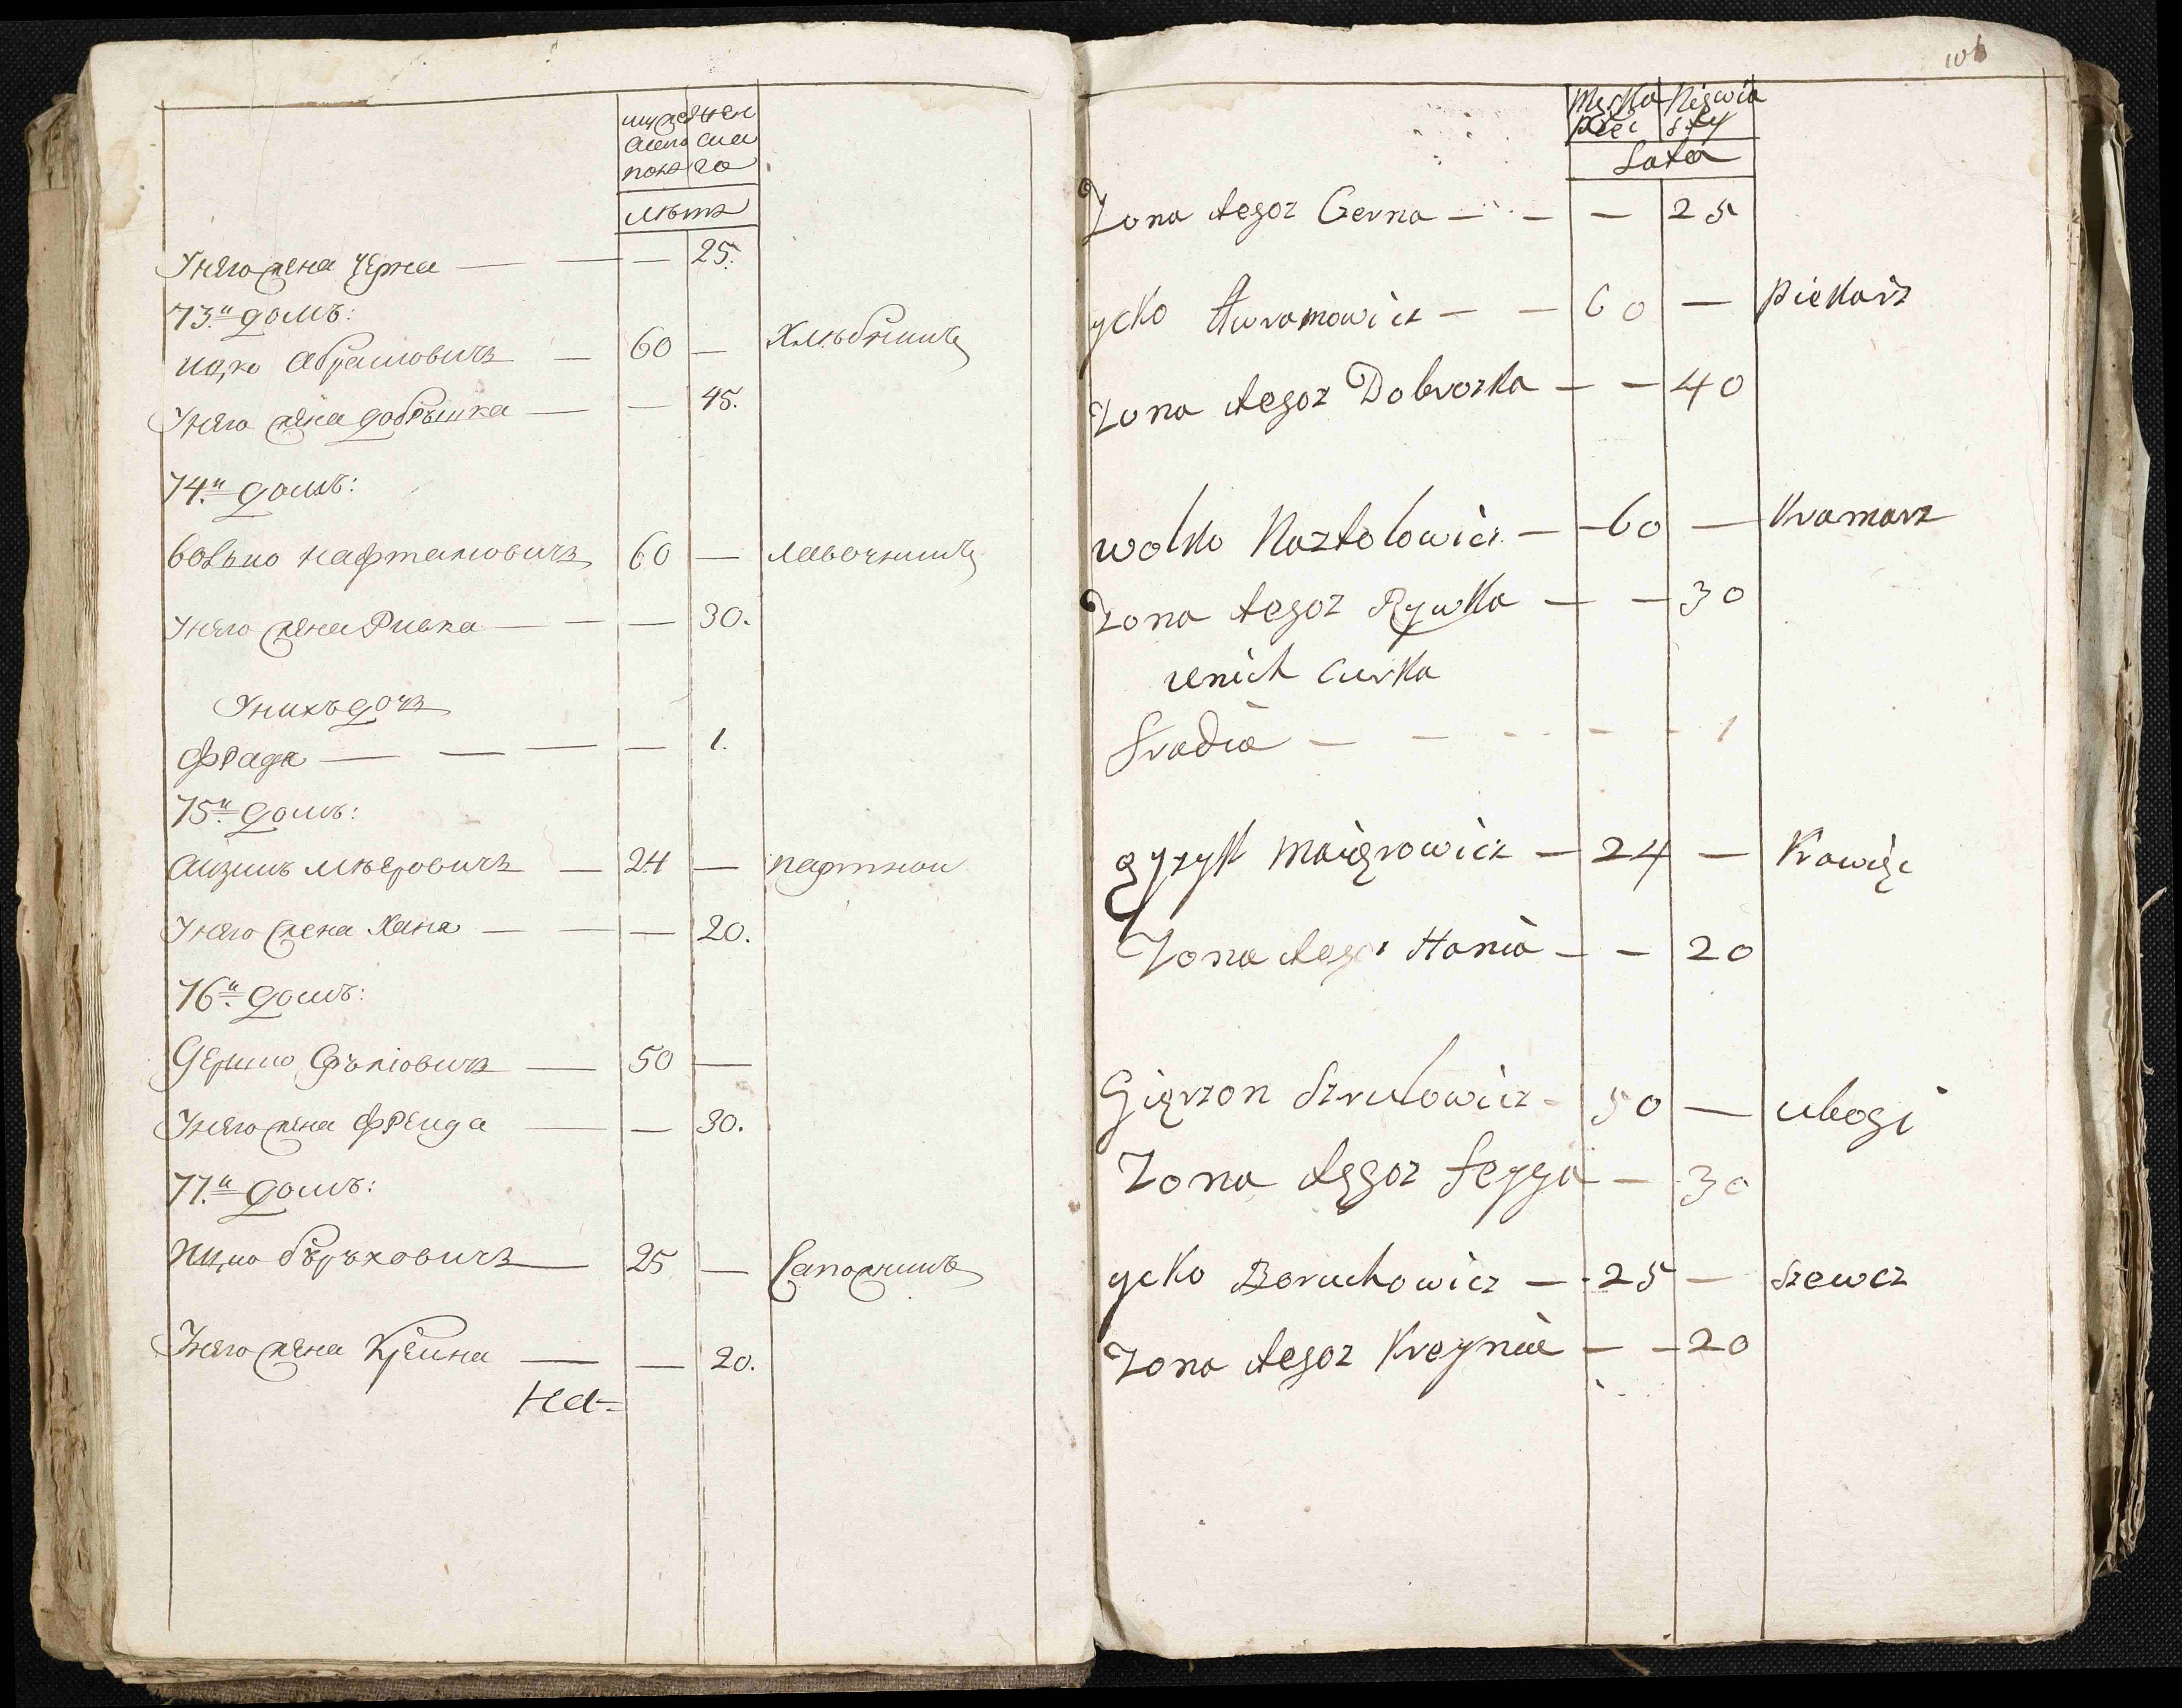 мужеска жен
ска
пола го
лѣтъ
Унего жена Черна — — — 25.
73.й домъ:
ицко Абрамовичъ — 60 — Хлѣбникъ
Унего жена добрышка — — 45.
74.й домъ:
волько нафталовичъ 60 — лавочникъ
Унего жена Ривка — — — 30.
Унихъ дочь
Фрада — — — — 1.
75.й домъ:
Айзикъ мѣеровичъ — 24 — партной
Унего жена Хана — — — 20.
76.й домъ:
Гершко — 50 —
Унего жена Фреида — — 30.
77.й домъ:
Ицко боруховичъ — 25 — Сапожникъ
Унего жена Креина — — 20.
На-
106
Męska Niewia
płec sty
Lata
Zona tegoz Cerna — — — 25
ycko Awramowicz — — 60 — piekarz
Zona tegoz Dobroszka — — 40
wolko Naztolowicz — 60 — Kramarz
Zona tegoz Rywka — — 30
uenich Curka
Fradia — — — — — 1
gyzyk Maierowicz — 24 — Krawięc
Zona tego Hania — — 20
Gięrzon Szrulowicz — 50 — ubogi
Zona tegoz feyga — 30
ycko Boruchowicz — 25 — Szewcz
Zona tegoz Kreynia — — 20